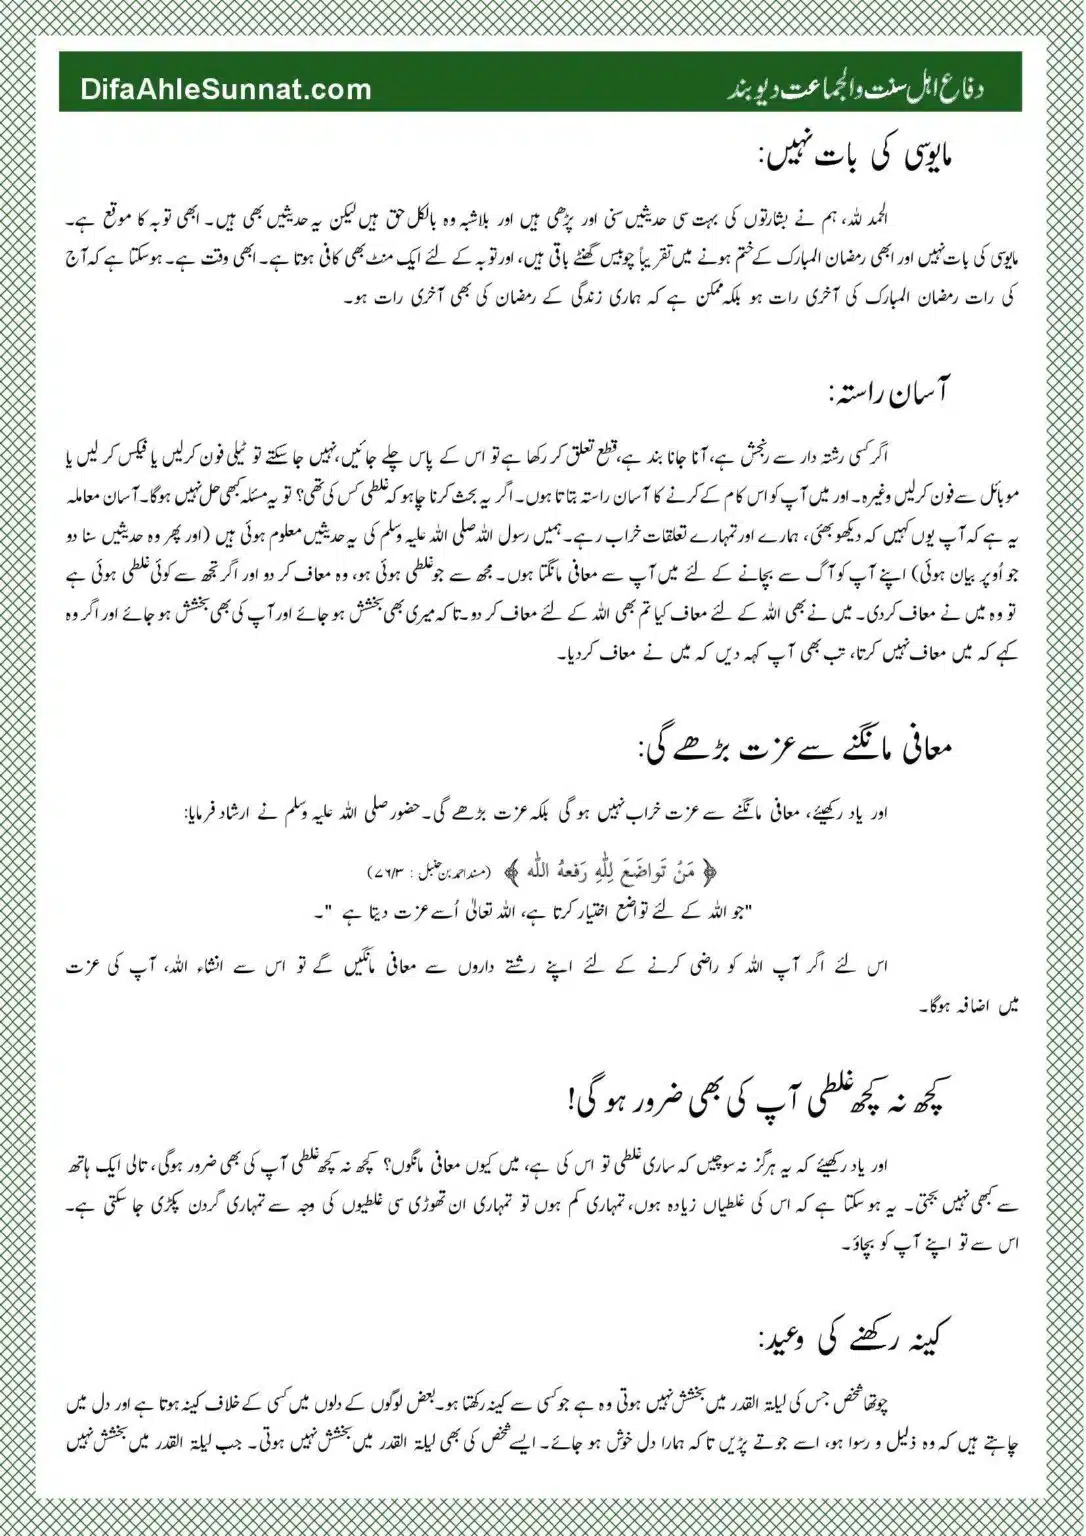 DifaAhleSunnat.com
دفاع اہل سنت والجماعت دیوبند
مایوسی کی بات نہیں:
الحمد للہ، ہم نے بشارتوں کی بہت سی حدیثیں سنی اور پڑھی ہیں اور بلاشبہ وہ بالکل حق ہیں لیکن یہ حدیثیں بھی ہیں۔ ابھی توبہ کا موقع ہے۔
مایوسی کی بات نہیں اور ابھی رمضان المبارک کے ختم ہونے میں تقریباً چوبیس گھنٹے باقی ہیں، اور توبہ کے لئے ایک منٹ بھی کافی ہوتا ہے۔ ابھی وقت ہے۔ ہوسکتا ہے کہ آج
کی رات رمضان المبارک کی آخری رات ہو بلکہ ممکن ہے کہ ہماری زندگی کے رمضان کی بھی آخری رات ہو۔
آسان راستہ:
اگر کسی رشتہ دار سے رنجش ہے، آنا جانا بند ہے، قطع تعلق کر رکھا ہے تو اس کے پاس چلے جائیں، نہیں جا سکتے تو ٹیلی فون کرلیں یا فیکس کر لیں یا
موبائل سے فون کرلیں وغیرہ۔ اور میں آپ کو اس کام کے کرنے کا آسان راستہ بتاتا ہوں۔ اگر یہ بحث کرنا چاہو کہ غلطی کس کی تھی؟ تو یہ مسئلہ کبھی حل نہیں ہوگا۔ آسان معاملہ
یہ ہے کہ آپ یوں کہیں کہ دیکھو بھئی، ہمارے اور تمہارے تعلقات خراب رہے۔ ہمیں رسول اللہ صلی اللہ علیہ وسلم کی یہ حدیثیں معلوم ہوئی ہیں (اور پھر وہ حدیثیں سنا دو
جو اُوپر بیان ہوئی) اپنے آپ کو آگ سے بچانے کے لئے میں آپ سے معافی مانگتا ہوں۔ مجھ سے جو غلطی ہوئی ہو، وہ معاف کر دو اور اگر تجھ سے کوئی غلطی ہوئی ہے
تو وہ میں نے معاف کردی۔ میں نے بھی اللہ کے لئے معاف کیا تم بھی اللہ کے لئے معاف کر دو۔ تا کہ میری بھی بخشش ہو جائے اور آپ کی بھی بخشش ہو جائے اور اگر وہ
کہے کہ میں معاف نہیں کرتا، تب بھی آپ کہہ دیں کہ میں نے معاف کردیا۔
معافی مانگنے سے عزت بڑھے گی:
اور یاد رکھیئے، معافی مانگنے سے عزت خراب نہیں ہو گی بلکہ عزت بڑھے گی۔ حضور صلی اللہ علیہ وسلم نے ارشاد فرمایا:
﴿ مَنْ تَواضَعَ لِلّٰهِ رَفعهُ اللّٰه ﴾ (مسند احمد بن حنبل : ۷۶/۳)
"جو اللہ کے لئے تواضع اختیار کرتا ہے، اللہ تعالیٰ اُسے عزت دیتا ہے "۔
اس لئے اگر آپ اللہ کو راضی کرنے کے لئے اپنے رشتے داروں سے معافی مانگیں گے تو اس سے انشاء اللہ، آپ کی عزت
میں اضافہ ہوگا۔
کچھ نہ کچھ غلطی آپ کی بھی ضرور ہو گی!
اور یاد رکھیئے کہ یہ ہرگز نہ سوچیں کہ ساری غلطی تو اس کی ہے، میں کیوں معافی مانگوں؟ کچھ نہ کچھ غلطی آپ کی بھی ضرور ہوگی، تالی ایک ہاتھ
سے کبھی نہیں بجتی۔ یہ ہو سکتا ہے کہ اس کی غلطیاں زیادہ ہوں، تمہاری کم ہوں تو تمہاری ان تھوڑی سی غلطیوں کی وجہ سے تمہاری گردن پکڑی جا سکتی ہے۔
اس سے تو اپنے آپ کو بچاؤ۔
کینہ رکھنے کی وعید:
چوتھا شخص جس کی لیلۃ القدر میں بخشش نہیں ہوتی وہ ہے جو کسی سے کینہ رکھتا ہو۔ بعض لوگوں کے دلوں میں کسی کے خلاف کینہ ہوتا ہے اور دل میں
چاہتے ہیں کہ وہ ذلیل و رسوا ہو، اسے جوتے پڑیں تا کہ ہمارا دل خوش ہو جائے۔ ایسے شخص کی بھی لیلۃ القدر میں بخشش نہیں ہوتی۔ جب لیلۃ القدر میں بخشش نہیں